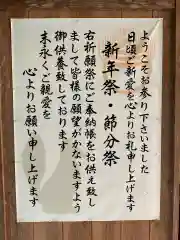 ようこそお参り下さいました
日頃ご新愛を心よりお礼申し上げます
新年祭・節分祭
右祈願祭にご奉納帳をお供え致し
まして皆様の願望がかないますよう
御供養致しております
末永くご親愛を
心よりお願い申し上げます